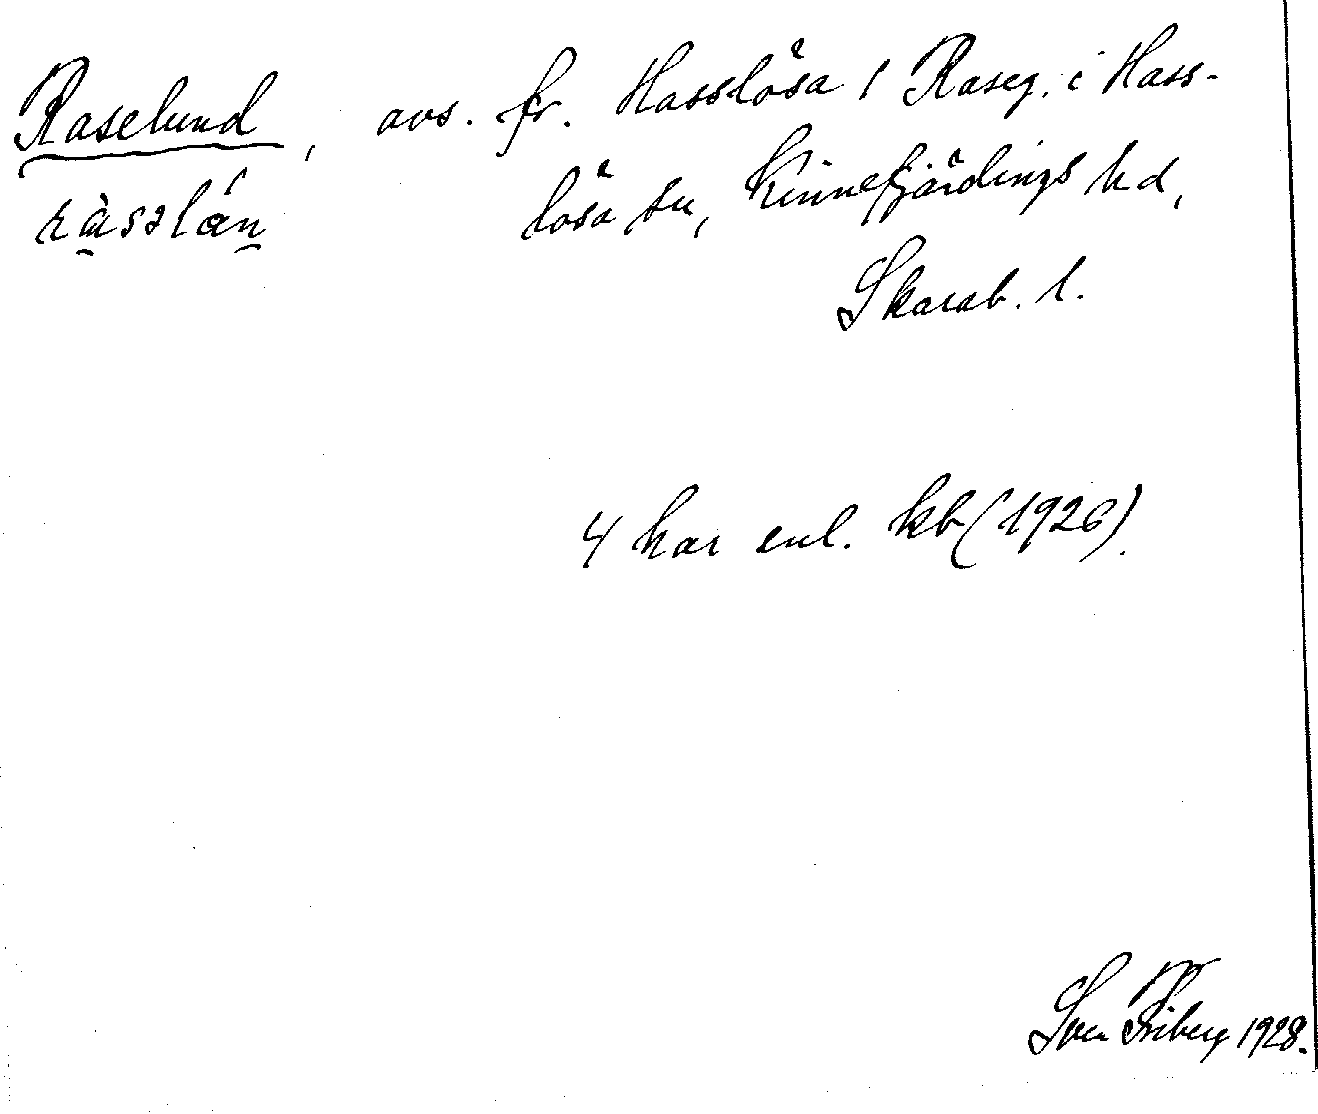 Raselund, avs. fr. Hasslösa 1 Raseg. i Hass-
lösa sn, Kinnefjärdings hd,
Skarab. l.
ràsəlán
4 har enl. kb (1926).
Sven Friberg 1928.